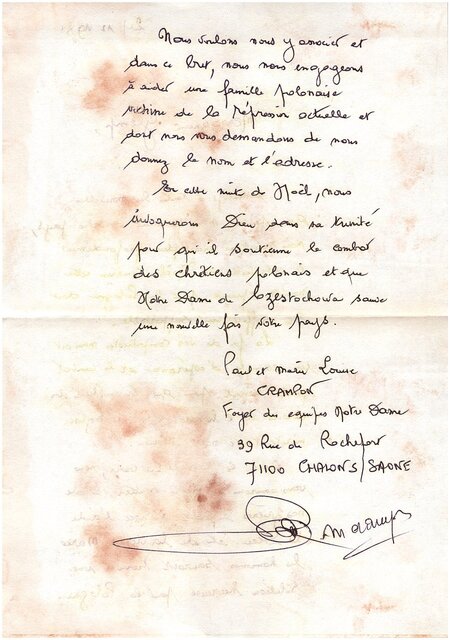 Nous voulons nous y associer et
dans ce but, nous nous engageons
à aider une famille polonaise
victime de la répression actuelle et
dont nous vous demandons de nous
donner le nom et l'adresse.
En cette nuit de Noël, nous
invoquerons Dieu dans sa trinité
pour qu'il soutienne le combat
des chrétiens polonais et que
Notre Dame de Czestochowa sauve
une nouvelle fois votre pays.
Paul et Marie Louise
CRAMPON
Foyer des equipes Notre Dame
39 Rue de Rochefort
71100 CHALONS/SAONE